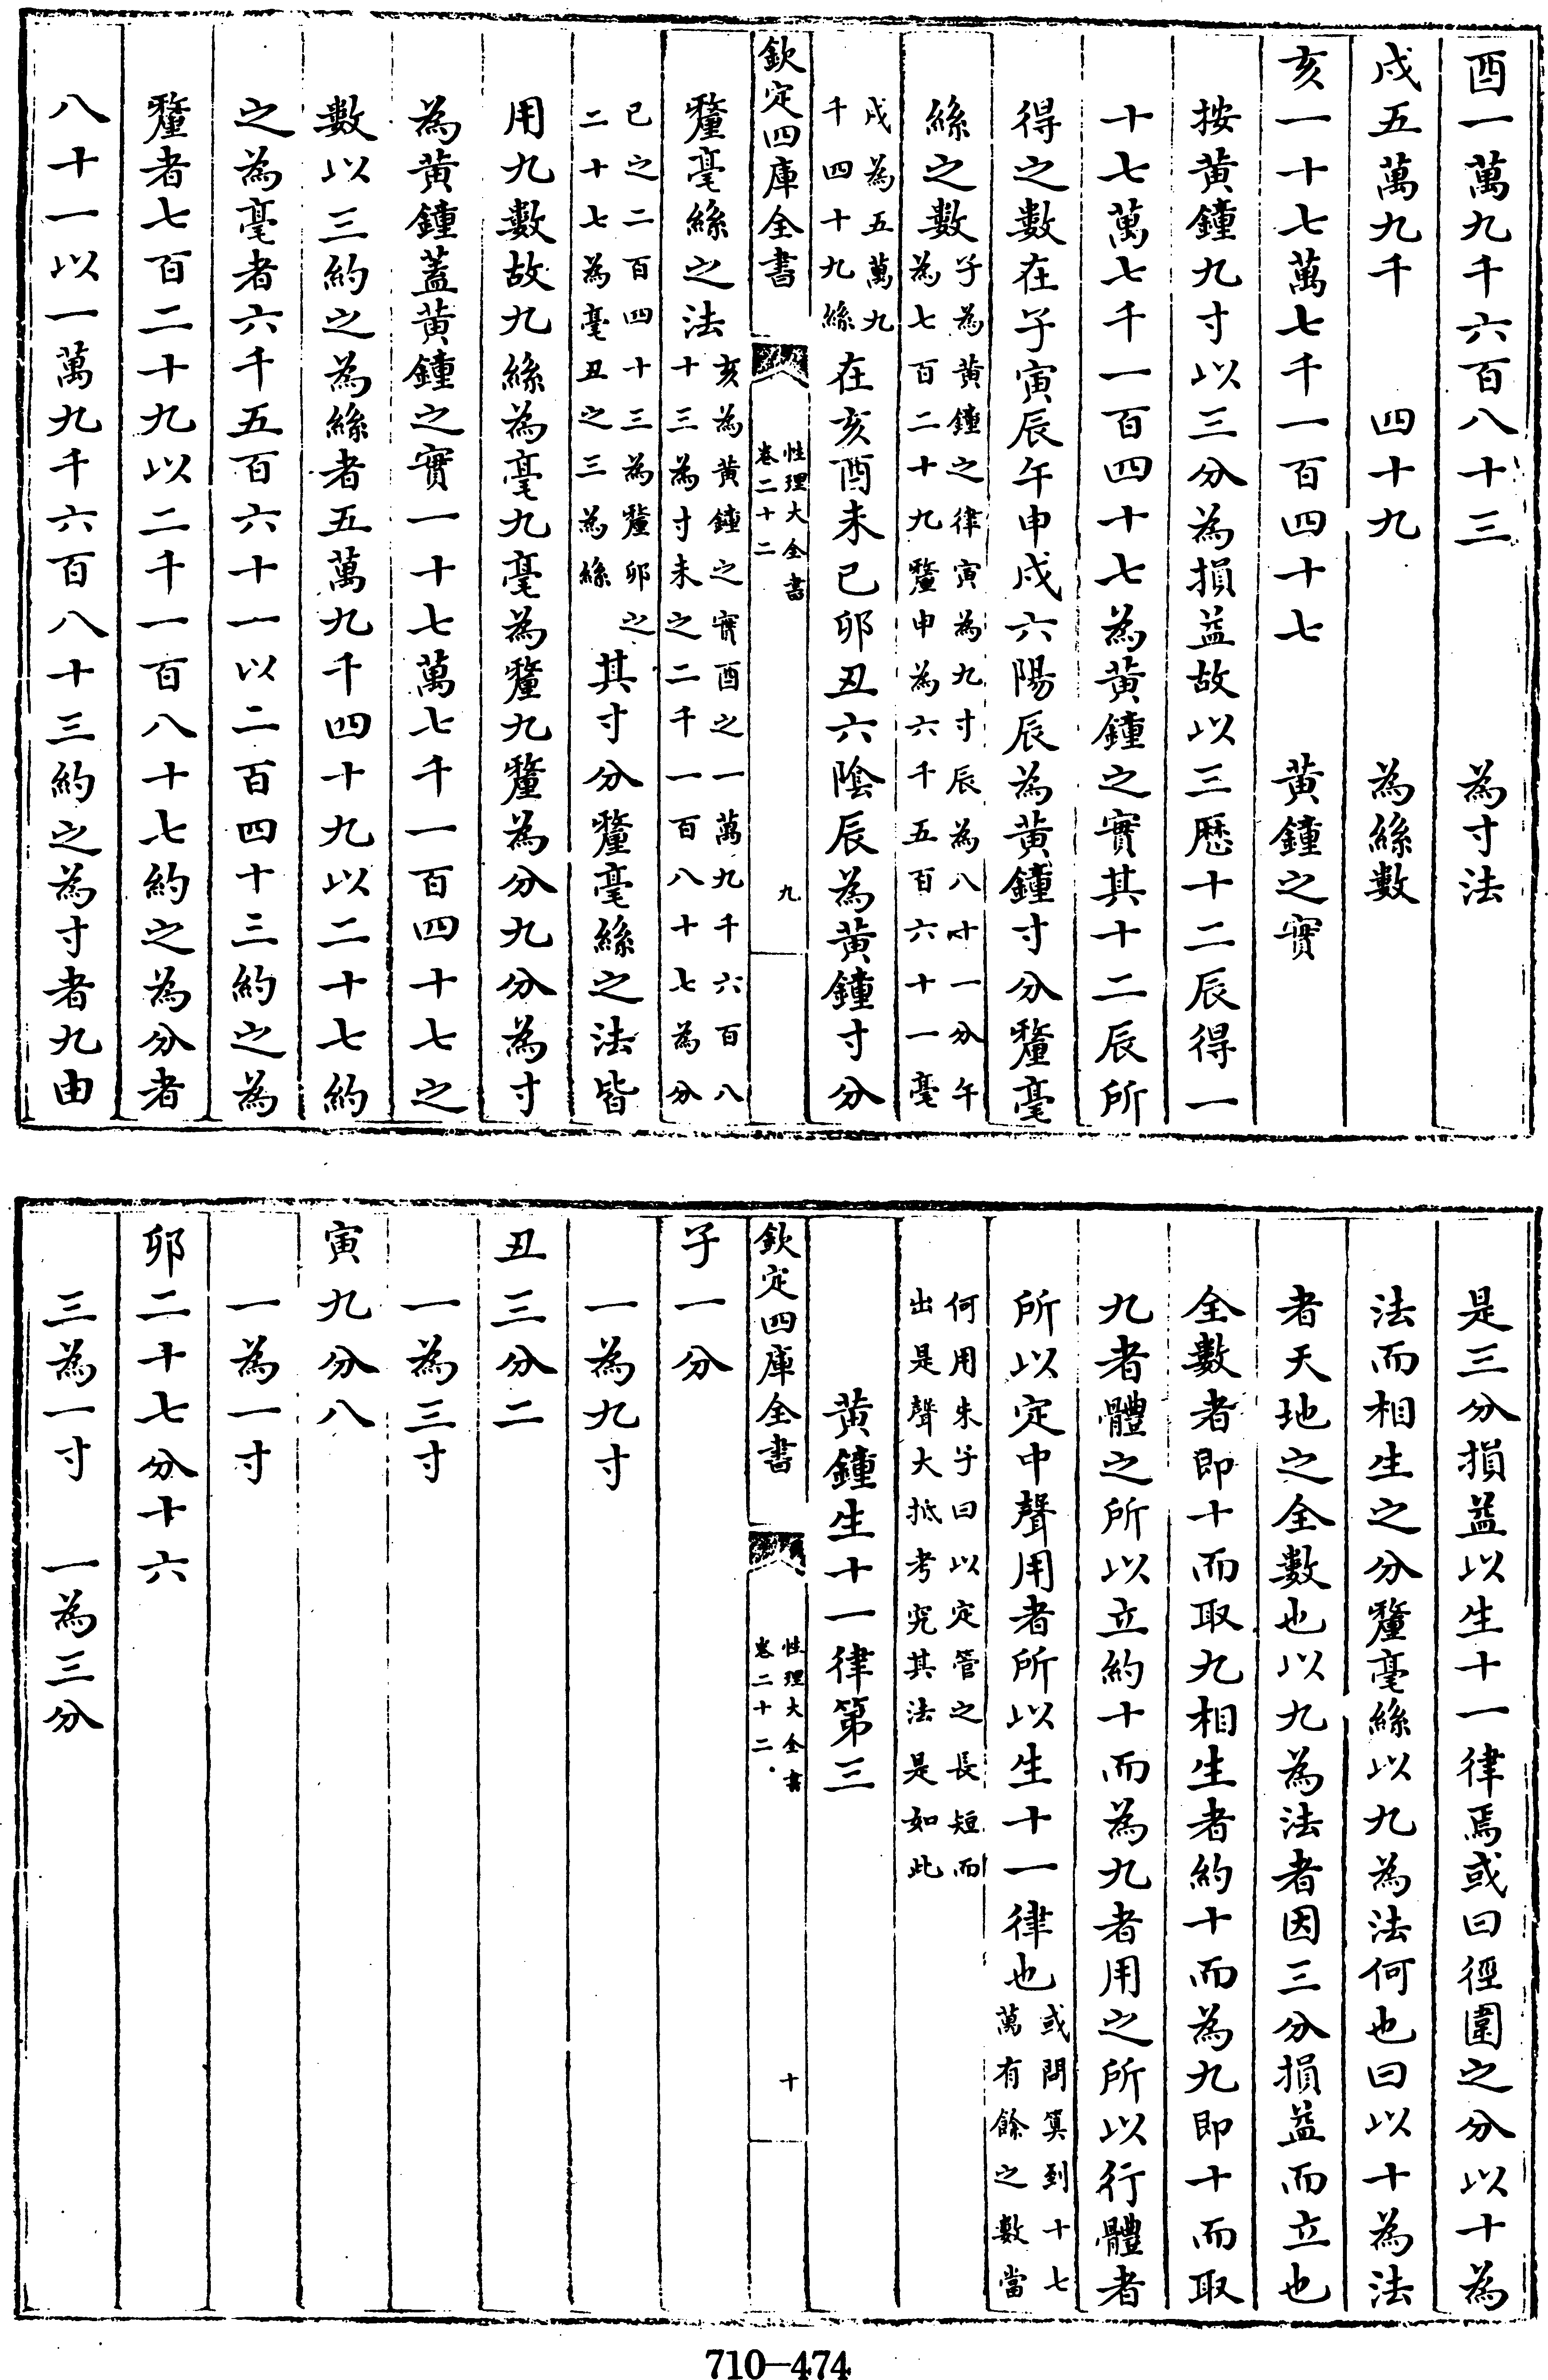 酉一萬九千六百八十三　為寸法
戌五萬九千　四十九　為絲數
亥一十七萬七千一百四十七　黃鐘之實
按黃鐘九寸以三分為損益故以三歷十二辰得一
十七萬七千一百四十七為黃鐘之實其十二辰所
得之數在子寅辰午申戌六陽辰為黃鐘寸分釐毫
絲之數子為黃鐘之律寅為九寸辰為八十一分午為七百二十九釐申為六千五百六十一毫
戌為五萬九千四十九絲在亥酉未巳卯丑六陰辰為黃鐘寸分
欽定四庫全書　性理大全書卷二十二　九
釐毫絲之法亥為黃鐘之實酉之一萬九千六百八十三為寸未之二千一百八十七為分
巳之二百四十三為釐卯之二十七為毫丑之三為絲其寸分釐毫絲之法皆
用九數故九絲為毫九毫為釐九釐為分九分為寸
為黃鐘蓋黃鐘之實一十七萬七千一百四十七之
數以三約之為絲者五萬九千四十九以二十七約
之為毫者六千五百六十一以二百四十三約之為
釐者七百二十九以二千一百八十七約之為分者
八十一以一萬九千六百八十三約之為寸者九由
是三分損益以生十一律焉或曰徑圍之分以十為
法而相生之分釐毫絲以九為法何也曰以十為法
者天地之全數也以九為法者因三分損益而立也
全數者即十而取九相生者約十而為九即十而取
九者體之所以立約十而為九者用之所以行體者
所以定中聲用者所以生十一律也或問筭到十七萬有餘之數當
何用朱子曰以定管之長短而出是聲大抵考究其法是如此
黃鐘生十一律第三
欽定四庫全書　性理大全書卷二十二　十
子一分
一為九寸
丑三分二
一為三寸
寅九分八
一為一寸
卯二十七分十六
三為一寸　一為三分
710—474